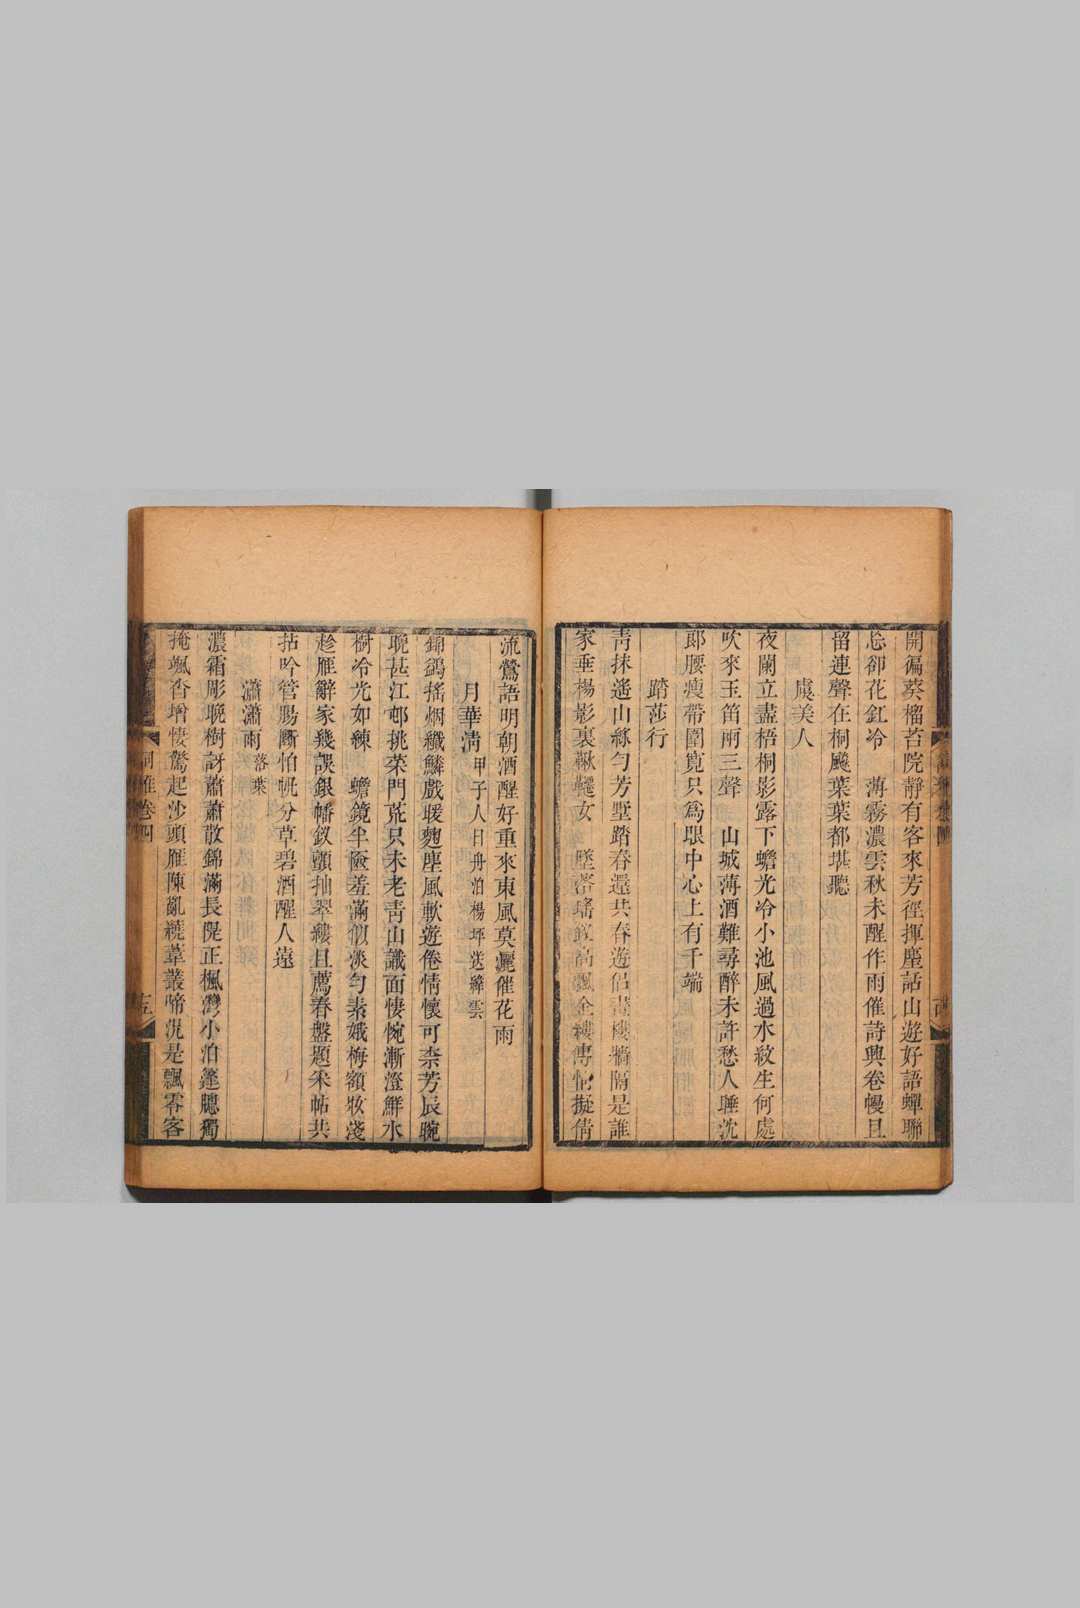 開徧葵榴苔院靜有客來芳徑揮麈話山遊好語蟬聯
忘卻花釭冷　薄霧濃雲秋未醒作雨催詩興卷幔且
留連聲在桐飈葉葉都堪聽
虞美人
夜闌立盡梧桐影露下蟾光冷小池風過水紋生何處
吹來玉笛兩三聲　山城薄酒難尋醉未許愁人睡沈
郎腰瘦帶圍寬只爲眼中心上有千端
踏莎行
靑抹遙山綠勻芳墅踏春還共春遊侶畫樓牆隔是誰
家垂楊影裏鞦韆女　墜瑤高飄金縷傳情擬倩
流鶯語明朝酒醒好重來東風莫灑催花雨
月華淸甲子人日舟泊楊坪送繂雲
錦鷁搖烟纖鱗戲暖麴塵風軟遊倦情懷可柰芳辰晼
晚甚江邨挑菜門荒只未老靑山識面悽惋漸澄鮮水
樹冷光如練　蟾鏡半奩羞滿似淡勻素娥梅額妝淺
趁雁辭家幾誤銀幡釵顫抽翠縷且薦春盤題采帖共
拈吟管腸斷怕帆分草碧酒醒人遠
瀟瀟雨落葉
濃霜彫晚樹訝蕭蕭散錦滿長隄正楓灣小泊篷牕獨
掩颯沓增悽驚起沙頭雁陳亂繞葦叢啼況是飄零客
詞雅卷四
十五